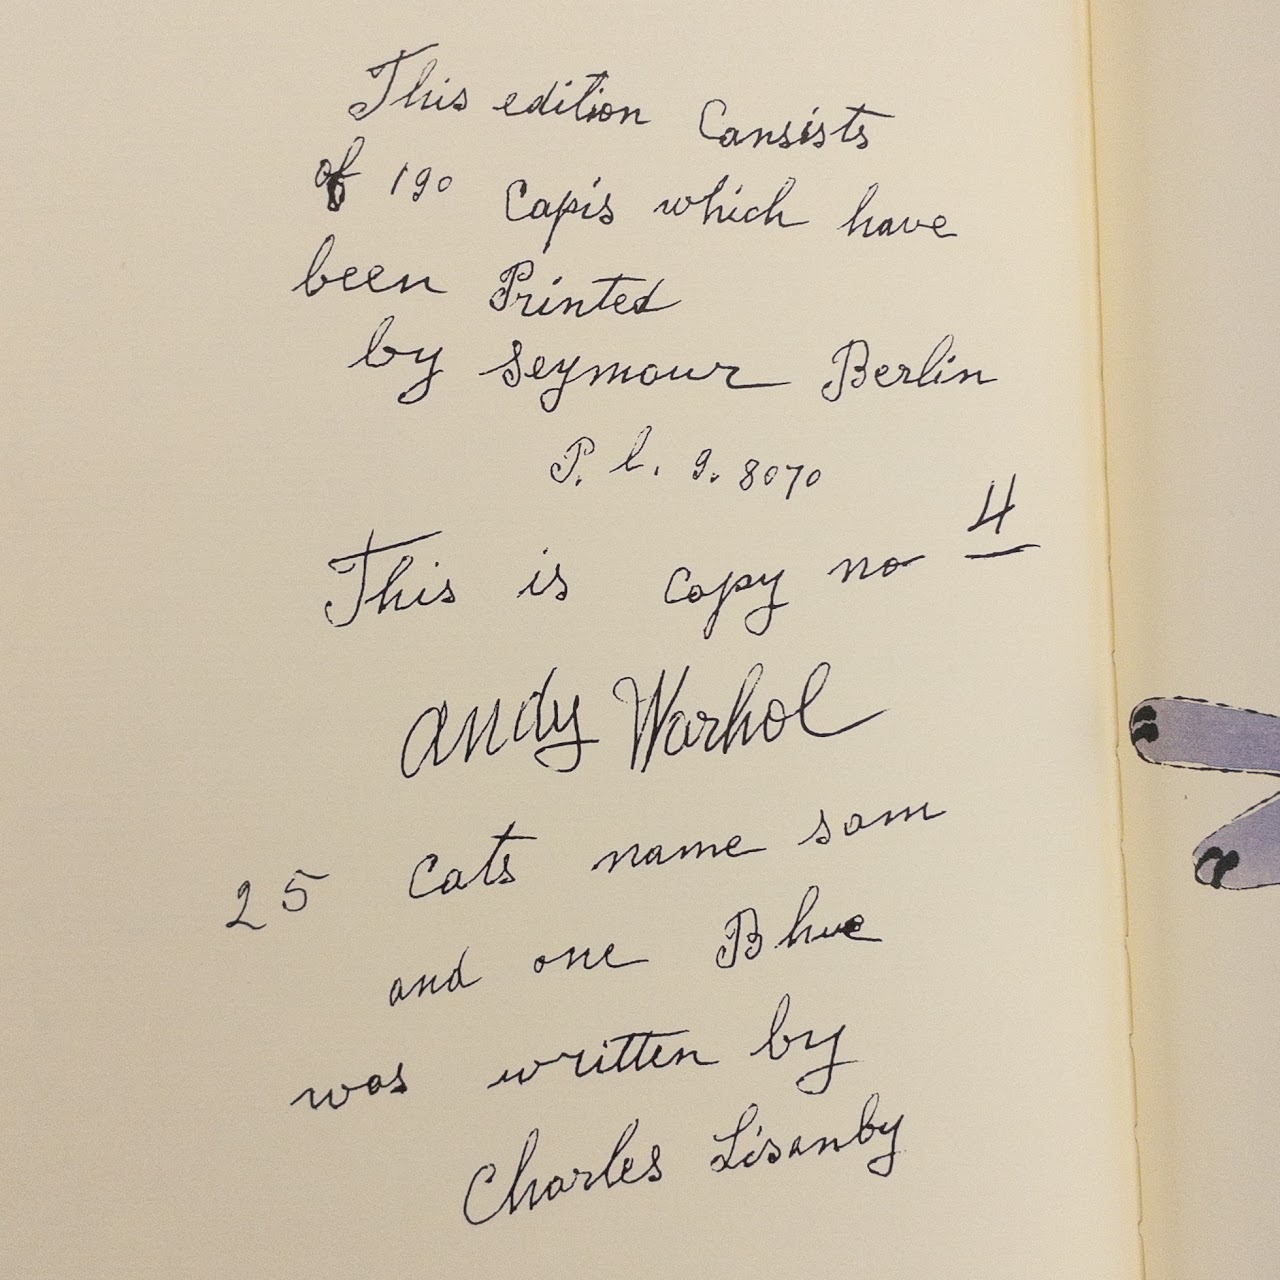 This edition Cansists
of 190 Capis which have
been Printed
by Seymour Berlin
P. l. 9. 8070
This is copy no 4
Andy Warhol
25 Cats name sam
and one Bhue
was written by
Charles Lisanby